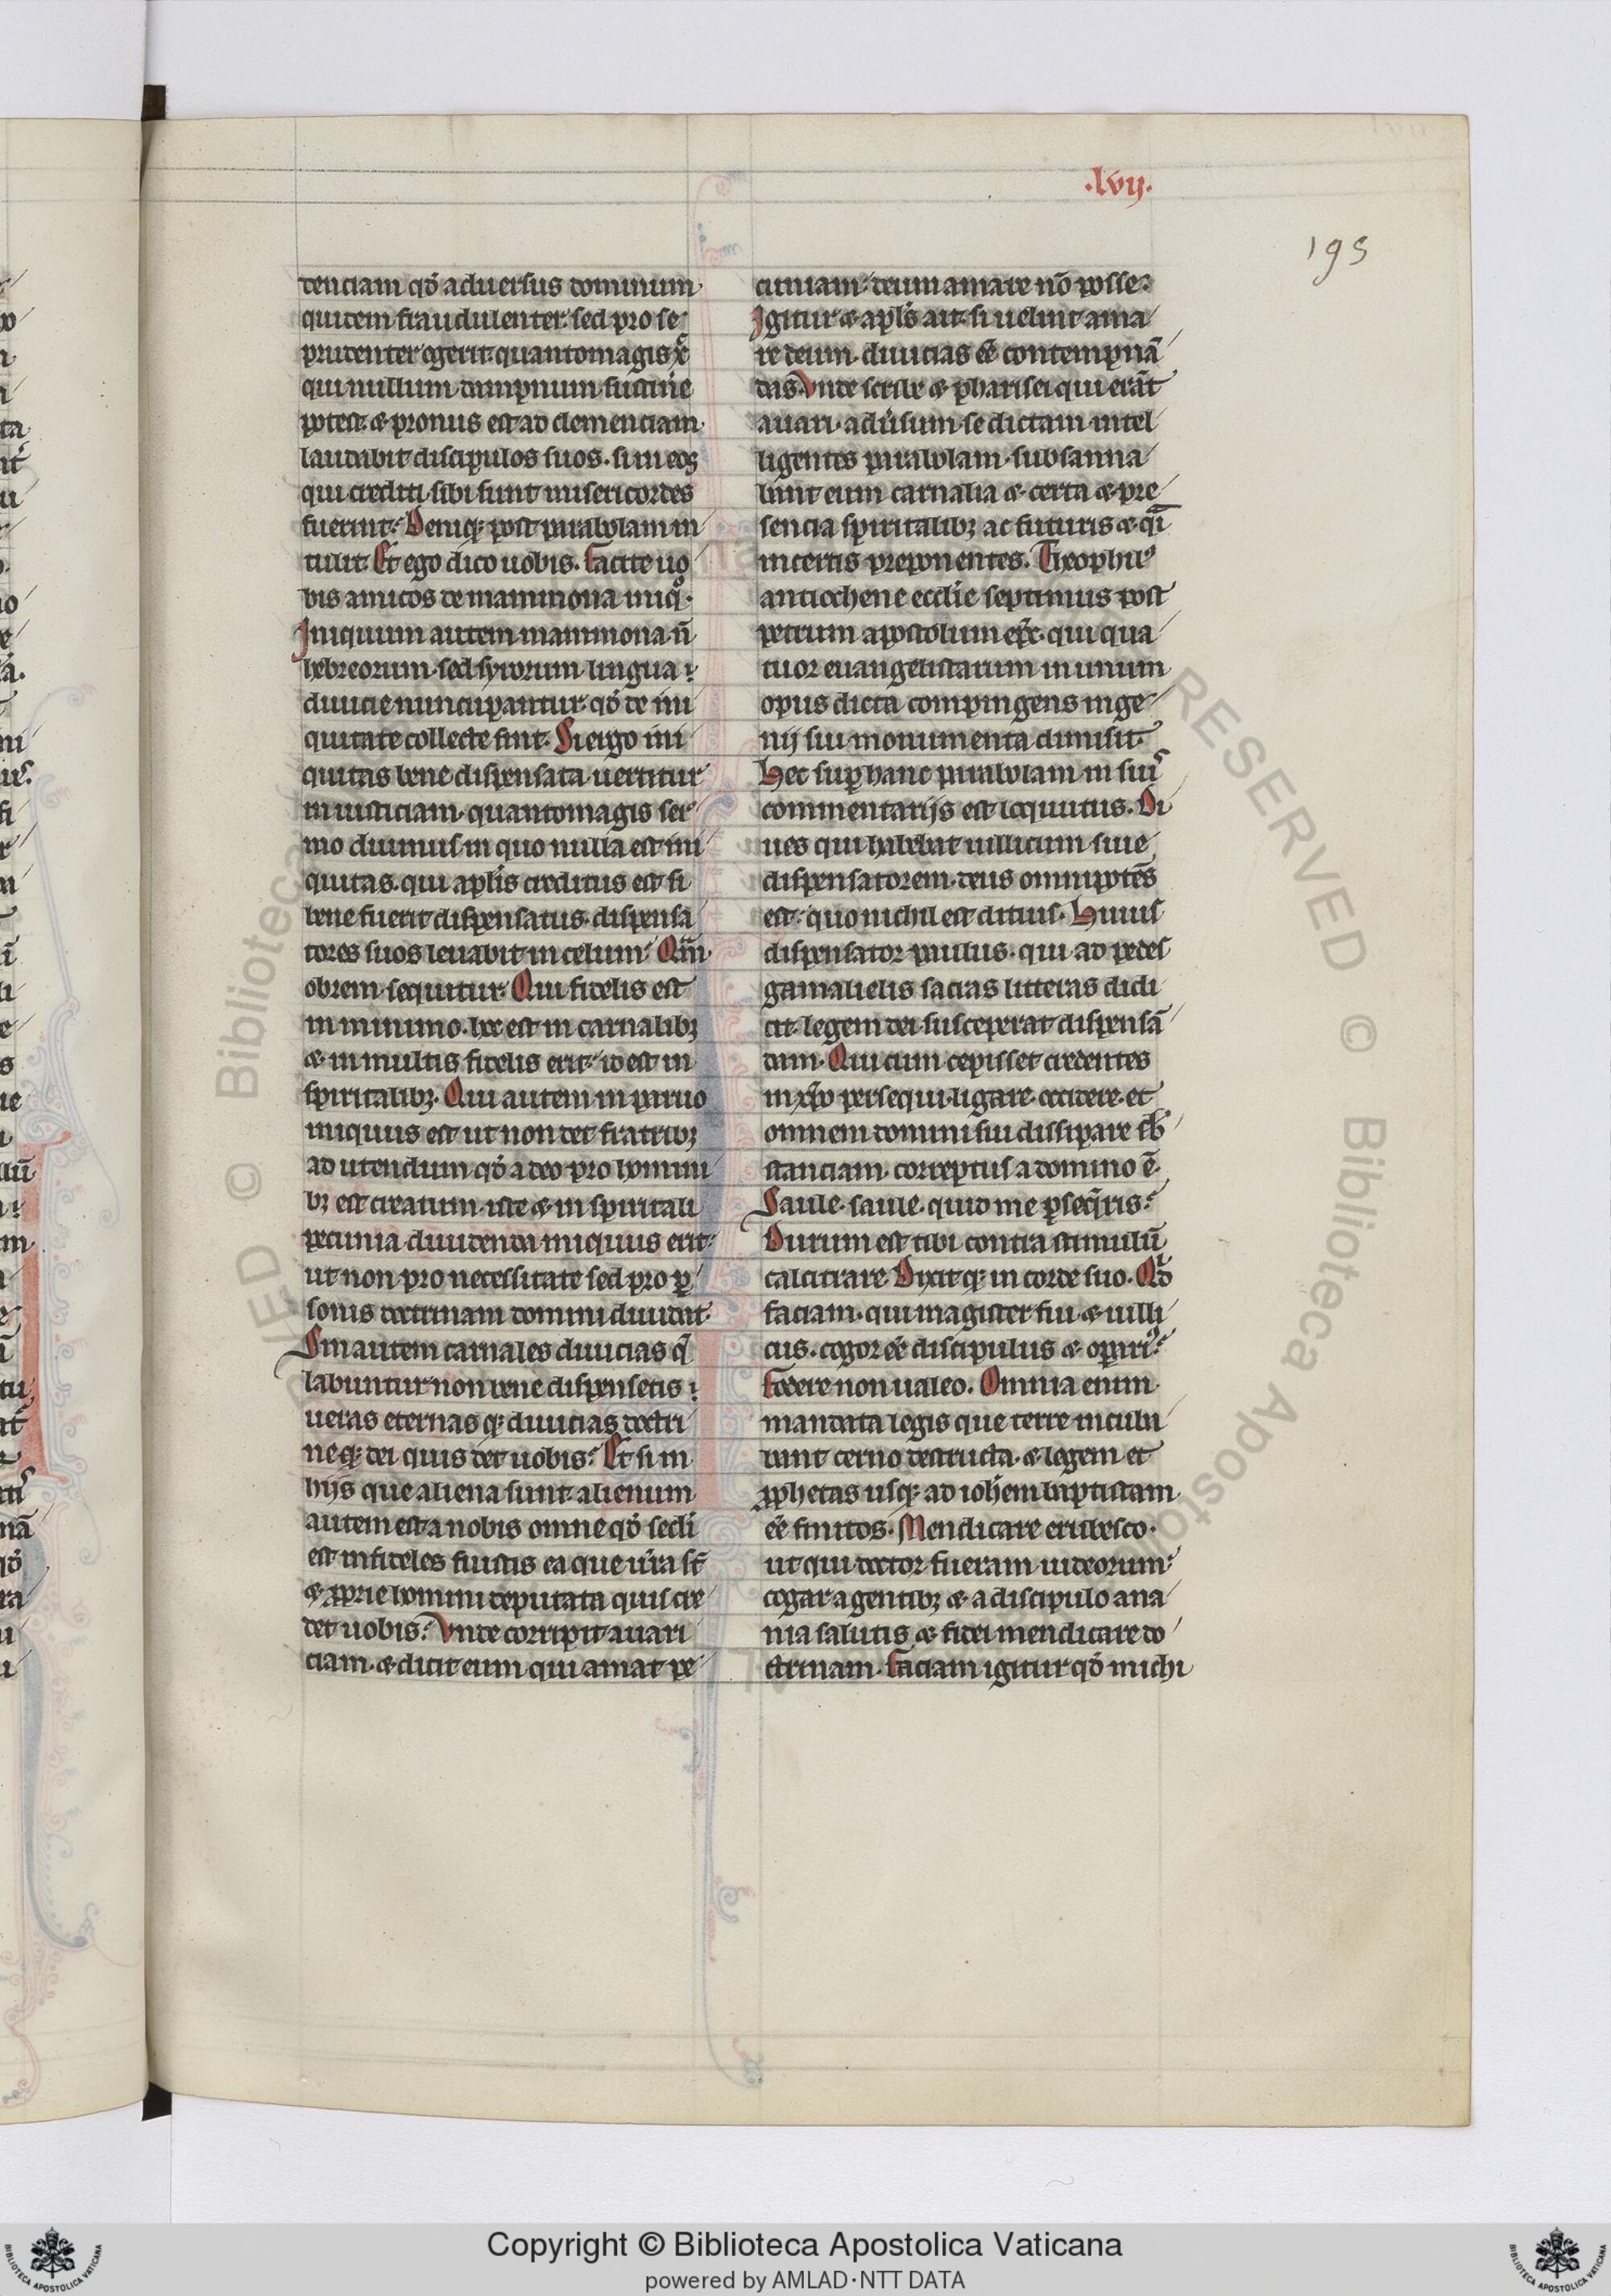 .lvij.
195
tenciam qđ aduersus dominum
quidem fraudulenter. sed pro se
prudenter egerit. quantomagis xp̄c
qui nullum dampnum sustinere
potest. & pronus est ad clemenciam.
laudabit discipulos suos. si in eos
qui crediti sibi sunt misericordes
fuerint. Deniq; post parabolam in
tulit. Et ego dico uobis. Facite uo
bis amicos de mammona iniq̊.
Iniquum autem mammona n̄
hebreorum sed syrorum lingua
diuicie nuncupantur. qđ de ini
quitate collecte sint. Si ergo ini
quitas bene dispensata uertitur
in iusticiam. quantomagis ser
mo diuinus in quo nulla est ini
quitas. qui apl̄is creditus est si
bene fuerit dispensatus. dispensa
tores suos leuabit in celum. Qm̄
obrem sequitur. Qui fidelis est
in minimo. hoc est in carnalib;
& in multis fidelis erit. id est in
spiritalib;. Qui autem in paruo
iniquus est ut non det fratrib;
ad utendum qđ a deo pro homini
b; est creatum. iste & in spiritali
pecunia diuidenda iniquus erit.
ut non pro necessitate sed pro ꝑ
sonis doctrinam domini diuidat.
Sin autem carnales diuicias q̄
labuntur non bene dispensetis
ueras eternas q; diuicias doctri
ne q; dei quis det uobis. Et si in
hijs que aliena sunt alienum
autem est a nobis omne qđ secli
est infideles fuistis ea que ur̄a st̄
& ꝓprie homini deputata quis cre
det uobis. Vnde corripit auari
ciam. & dicit eum qui amat pe
cuniam. deum amare nō posse.
Igitur & apl̄is ait. si uelint ama
re deum. diuicias eē contempnā
das. Vnde scribe & pharisei qui erāt
auari. aduersum se dictam intel
ligentes parabolam. subsanna
bant eum carnalia & certa & pre
sencia spiritalib; ac futuris & q̄i
incertis preponentes. Theophil9
antiochene ecclie septimus post
petrum apostolum epc̄. qui qua
tuor euangelistarum in unum
opus dicta compingens inge
nij sui monumenta dimisit.
Hec suꝑ hanc parabolam in suis
commentarijs est loquutus. Di
ues qui habebat uillicum siue
dispensatorem. deus omnipotēs
est. quo nichil est ditius. Huius
dispensator paulus. qui ad pedes
gamalielis sacras litteras didi
cit. legem dei susceperat dispensā
dam. Qui cum cepisset credentes
in xp̄o persequi. ligare. occidere. et
omnem domini sui dissipare sb̄
stanciam. correptus a domino ē.
Saule. saule. quid me ꝑseq̄ris.
Durum est tibi contra stimulū
calcitrare. Dixit q; in corde suo. Qđ
faciam. qui magister fui & uilli
cus. cogor eē discipulus & oꝑari9.
Fodere non ualeo. Omnia enim
mandata legis que terre incuba
bant cerno destructa. & legem et
ꝓphetas usq; ad ioh̄em baptistam
eē finitos. Mendicare erubesco.
ut qui doctor fueram iudeorum.
cogar a gentib; & a discipulo ana
nia salutis & fidei mendicare do
ctrinam. Faciam igitur qđ michi
Copyright © Biblioteca Apostolica Vaticana
powered by AMLAD·NTT DATA